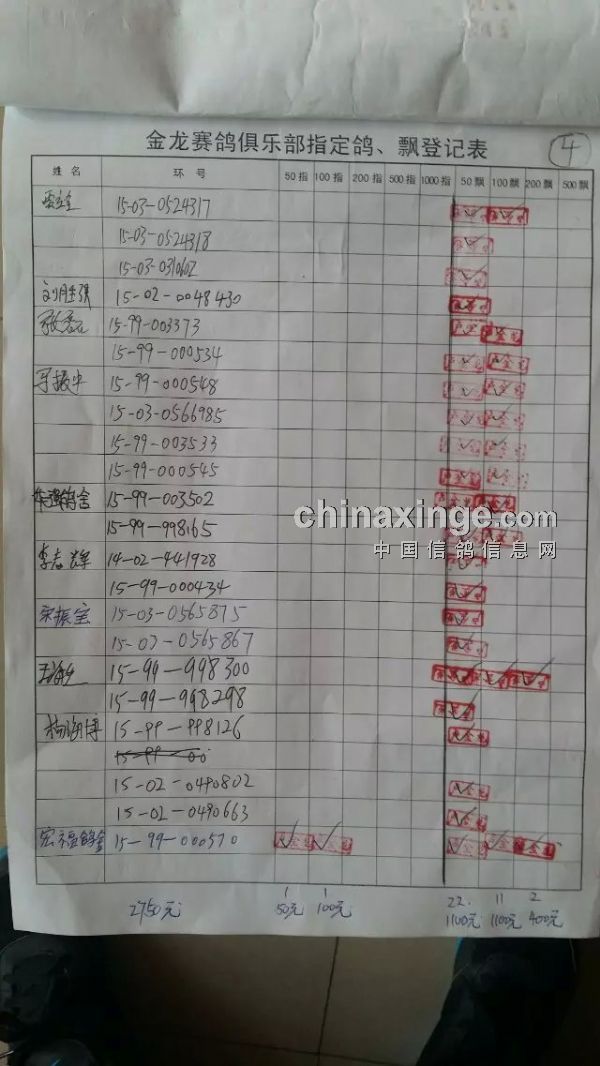 金龙赛鸽俱乐部指定鸽、飘登记表
4
姓名 环号 50指 100指 200指 500指 1000指 50飘 100飘 200飘 500飘
15-03-0524317
15-03-0524318
15-03-0310602
15-02-0048430
15-99-003373
15-99-000534
15-99-000548
15-03-0566985
15-99-003533
15-99-000545
鸽舍 15-99-003502
15-99-998165
李志辉 14-02-441928
15-99-000434
宋振宝 15-03-0565875
15-03-0565867
15-99-998300
15-99-998298
15-99-998126
15-99-00
15-02-0490802
15-02-0490663
宏福鸽舍 15-99-000570
1 1 22. 11 2
2750元 50元 100元 1100元 1100元 400元
chinaxinge.com
中国信鸽信息网